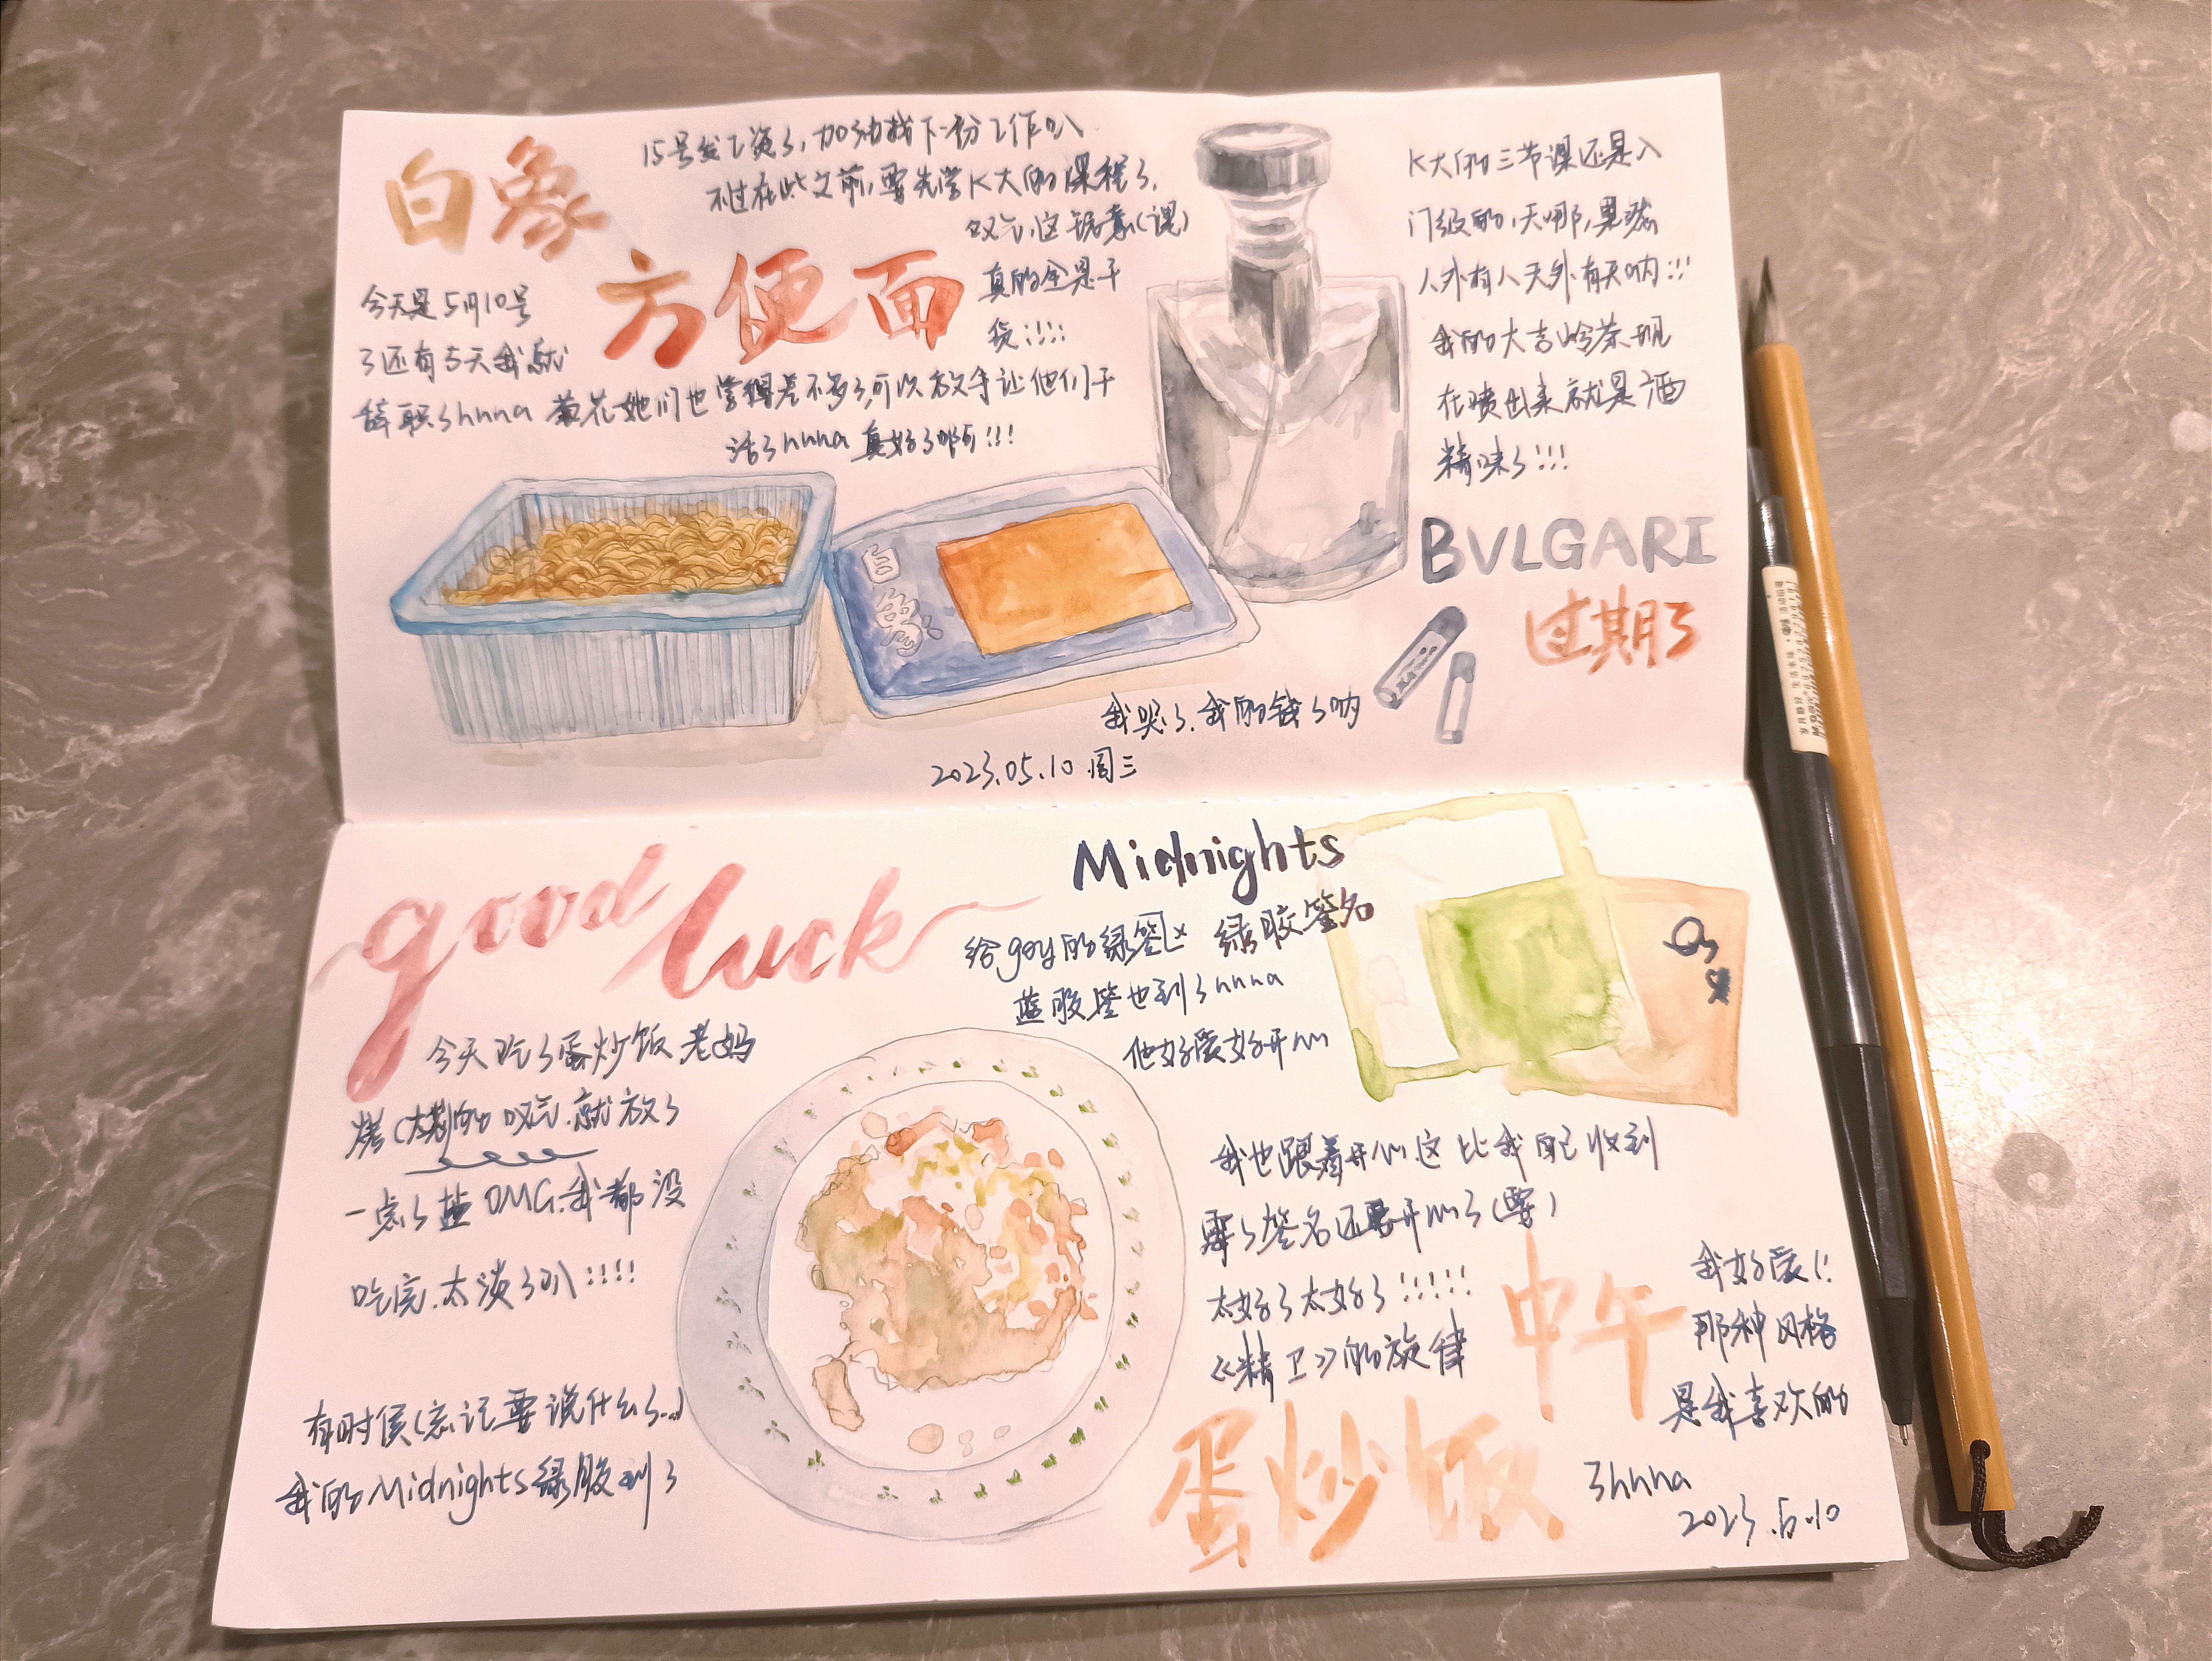 白象
方便面
今天是5月10号
了还有5天我就
辞职了hhhha 菊花她们也学得差不多了,可以放手让他们干
活了hhhha 真好了啊!!!
15号发工资了,加油找下一份工作叭
不过在此之前,要先学K大的课程了.
叹气.这锯素(课)
真的全是干
货!!!!
K大的三节课还是入
门级的,天哪,果然
人外有人天外有天呐!!!
我的大吉岭茶现
在喷出来就是酒
精味了!!!
BVLGARI
过期了
白象
我哭了.我的钱了呐
2023.05.10 周三
good luck
今天吃了蛋炒饭 老妈
叹气.就放了
一点了盐 OMG.我都没
吃完.太淡了叭!!!!
有时候(忘记要说什么了...)
我的Midnights绿胶到了
Midnights
绿胶签名
给gay的绿签
蓝胶签也到了hhhha
他好爱好开心
我也跟着开心.这比我自己收到
霉了签名还要开心了(要)
太好了太好了!!!!!
《精卫》的旋律
我好爱!!
那种风格
是我喜欢的
了hhha
中午
蛋炒饭
2023.5.10